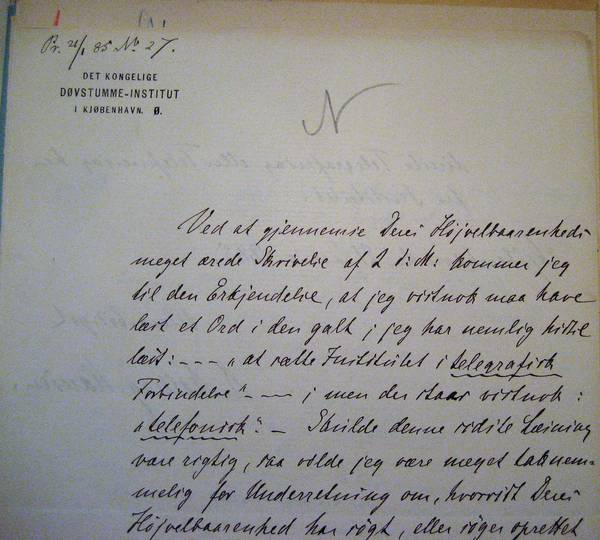 Pr. 21/1 85 No 27.
DET KONGELIGE
DØVSTUMME-INSTITUT
I KJØBENHAVN. Ø.
N
Ved at gjennemse Deres Højvelbaarenheds
meget ærede Skrivelse af 2 d: M: kommer jeg
til den Erkjendelse, at jeg vistnok maa have
læst et Ord i den galt; jeg har nemlig hidtil
læst: - - - „at sætte Institutet i telegrafisk
Forbindelse" - - - ; men der staar vistnok:
„telefonisk". - Skulde denne sidste Læsning
være rigtig, saa vilde jeg være meget taknem=
melig for Underretning om, hvorvidt Deres
Højvelbaarenhed har søgt, eller søger oprettet